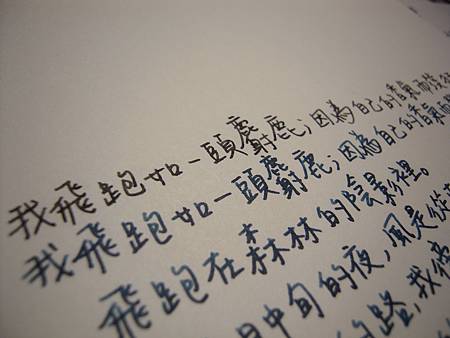 我飛跑如一頭麝鹿;因為自己的香氣而發
我飛跑如一頭麝鹿;因為自己的香氣而
飛跑在森林的陰影裡。
中旬的夜,風是從
的路,我